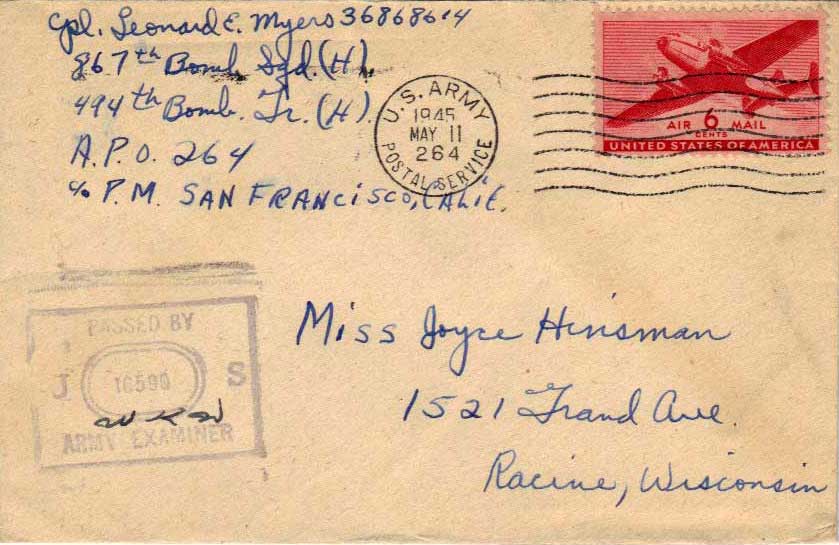 Cpl. Leonard E. Myers 36868614
867th Bomb Sqd. (H)
494th Bomb. Gr. (H).
A.P.O. 264
c/o P.M. SAN FRANCISCO, CALIF.
U.S. ARMY
1945
MAY 11
264
POSTAL SERVICE
AIR 6 MAIL
CENTS
UNITED STATES OF AMERICA
PASSED BY
J 16590 S
ARMY EXAMINER
Miss Joyce Hinsman
1521 Grand Ave.
Racine, Wisconsin